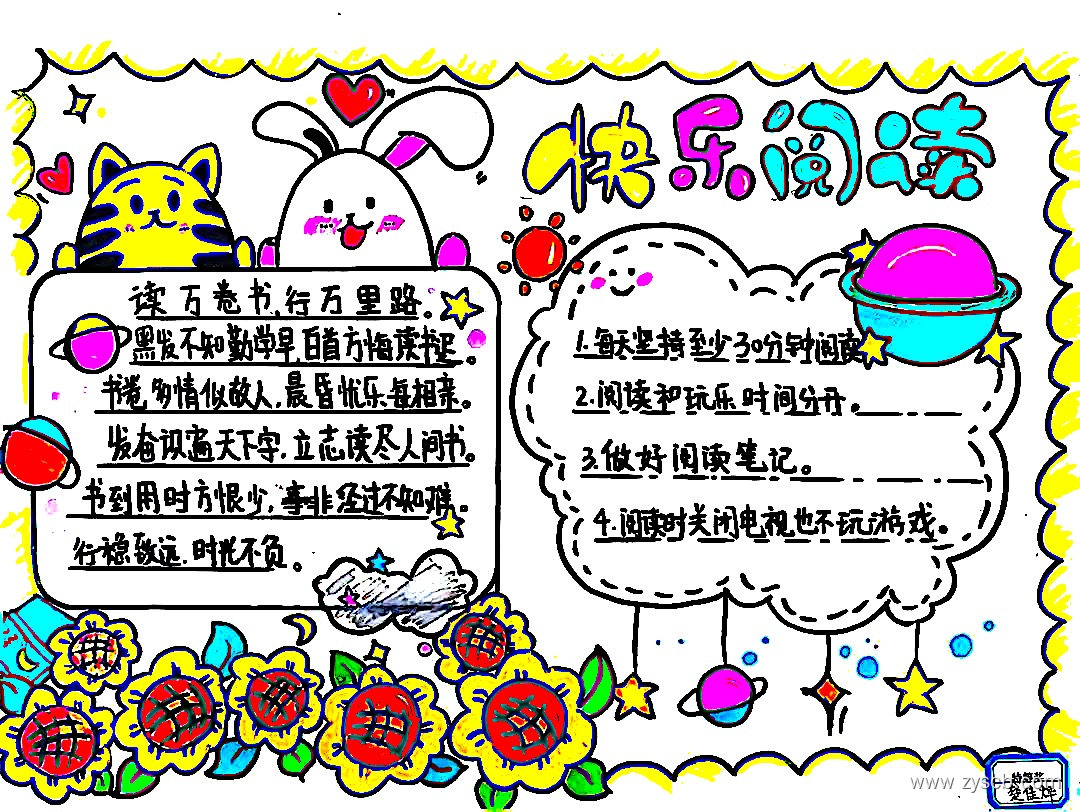 快乐阅读
读万卷书,行万里路。
黑发不知勤学早,白首方悔读书迟。
书卷多情似故人,晨昏忧乐每相亲。
发奋识遍天下字,立志读尽人间书。
书到用时方恨少,事非经过不知难。
行稳致远,时光不负。
1.每天坚持至少30分钟阅读
2.阅读和玩乐时间分开。
3.做好阅读笔记。
4.阅读时关闭电视也不玩游戏。